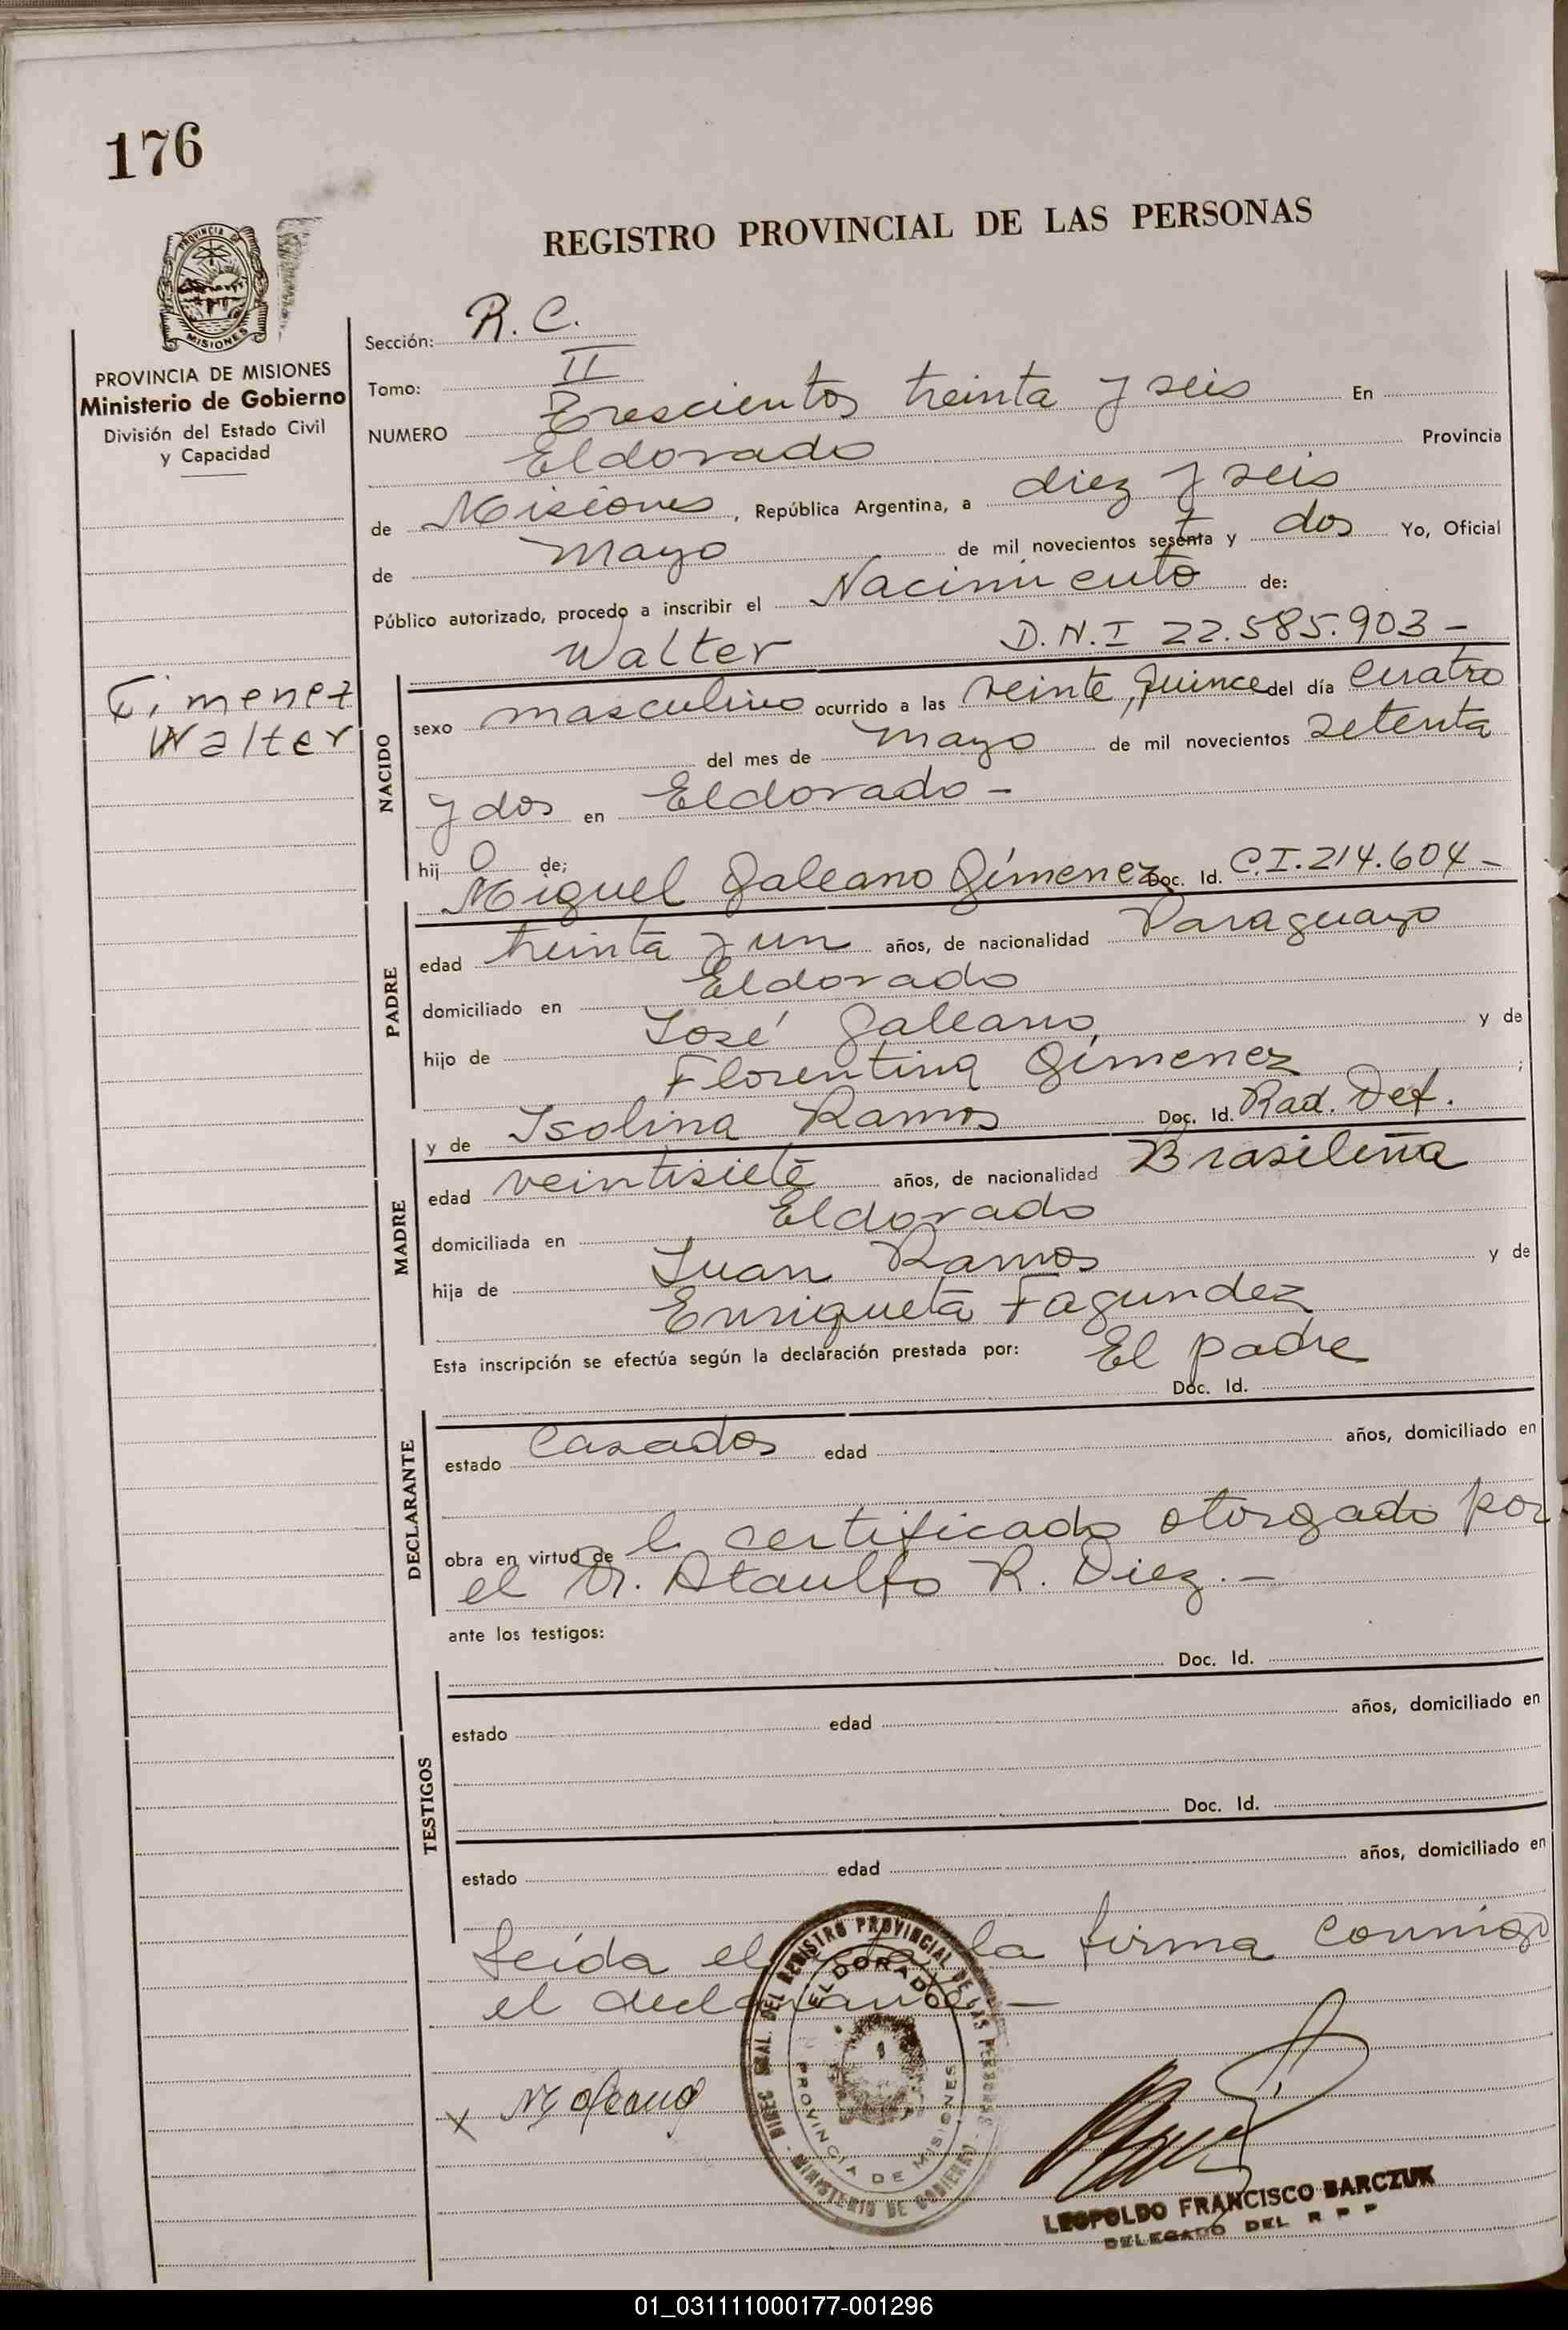 176
REGISTRO PROVINCIAL DE LAS PERSONAS
PROVINCIA DE
MISIONES
PROVINCIA DE MISIONES
Ministerio de Gobierno
División del Estado Civil
y Capacidad
Gimenez
Walter
Sección: R. C.
Tomo: II
NUMERO Trescientos treinta y seis En
Eldorado Provincia
de Misiones, República Argentina, a diez y seis
de mayo de mil novecientos sesenta y dos Yo, Oficial
Público autorizado, procedo a inscribir el Nacimiento de:
Walter D.N.I 22.585.903 -
NACIDO
sexo masculino ocurrido a las veinte, quince del día cuatro
del mes de mayo de mil novecientos setenta
y dos en Eldorado -
hij o de;
Miguel Galeano Gimenez Doc. Id. C.I. 214.604 -
PADRE
edad treinta y un años, de nacionalidad Paraguayo
domiciliado en Eldorado
hijo de José Galeano y de
Florentina Gimenez ;
y de Isolina Ramos Doc. Id. Rad. Def.
MADRE
edad veintisiete años, de nacionalidad Brasileña
domiciliada en Eldorado
hija de Juan Ramos y de
Enriqueta Fagundez
Esta inscripción se efectúa según la declaración prestada por: El padre
Doc. Id.
DECLARANTE
estado Casados edad años, domiciliado en
obra en virtud de l certificado otorgado por
el Dr. Ataulfo R. Diez. -
ante los testigos:
Doc. Id.
TESTIGOS
estado edad años, domiciliado en
Doc. Id.
estado edad años, domiciliado en
Leída el acta, la firma conmigo
el declarante -
DIREC. GRAL. DEL REGISTRO PROVINCIAL DE LAS PERSONAS
ELDORADO
PROVINCIA DE MISIONES
MINISTERIO DE GOBIERNO
x
LEOPOLDO FRANCISCO BARCZUK
DELEGADO DEL R P P
01_031111000177-001296